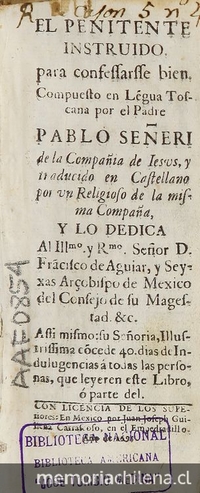 EL PENITENTE
INSTRUIDO,
para confessarsse bien,
Compuesto en Lẽgua Tos-
cana por el Padre
PABLO SEÑERI
de la Compañia de Iesvs, y
traducido en Castellano
por vn Religioso de la mis-
ma Compaña,
Y LO DEDICA
Al Illmo. y Rmo. Señor D.
Frãcisco de Aguiar, y Sey-
xas Arçobispo de Mexico
del Consejo de su Mages-
tad. &c.
Assi mismo: su Señoria, Illus-
trissima cõcede 40. dias de In-
dulugencias á todas las perso-
nas, que leyeren este Libro,
ó parte del.
CON LICENCIA DE LOS SUPE-
riores: En Mexico, por Juan Joseph Gui-
Carrascoso, en el
AAE0854
BIBLIOTECA NACIONAL
BIBLIOTECA AMERICANA
www.memoriachilena.cl